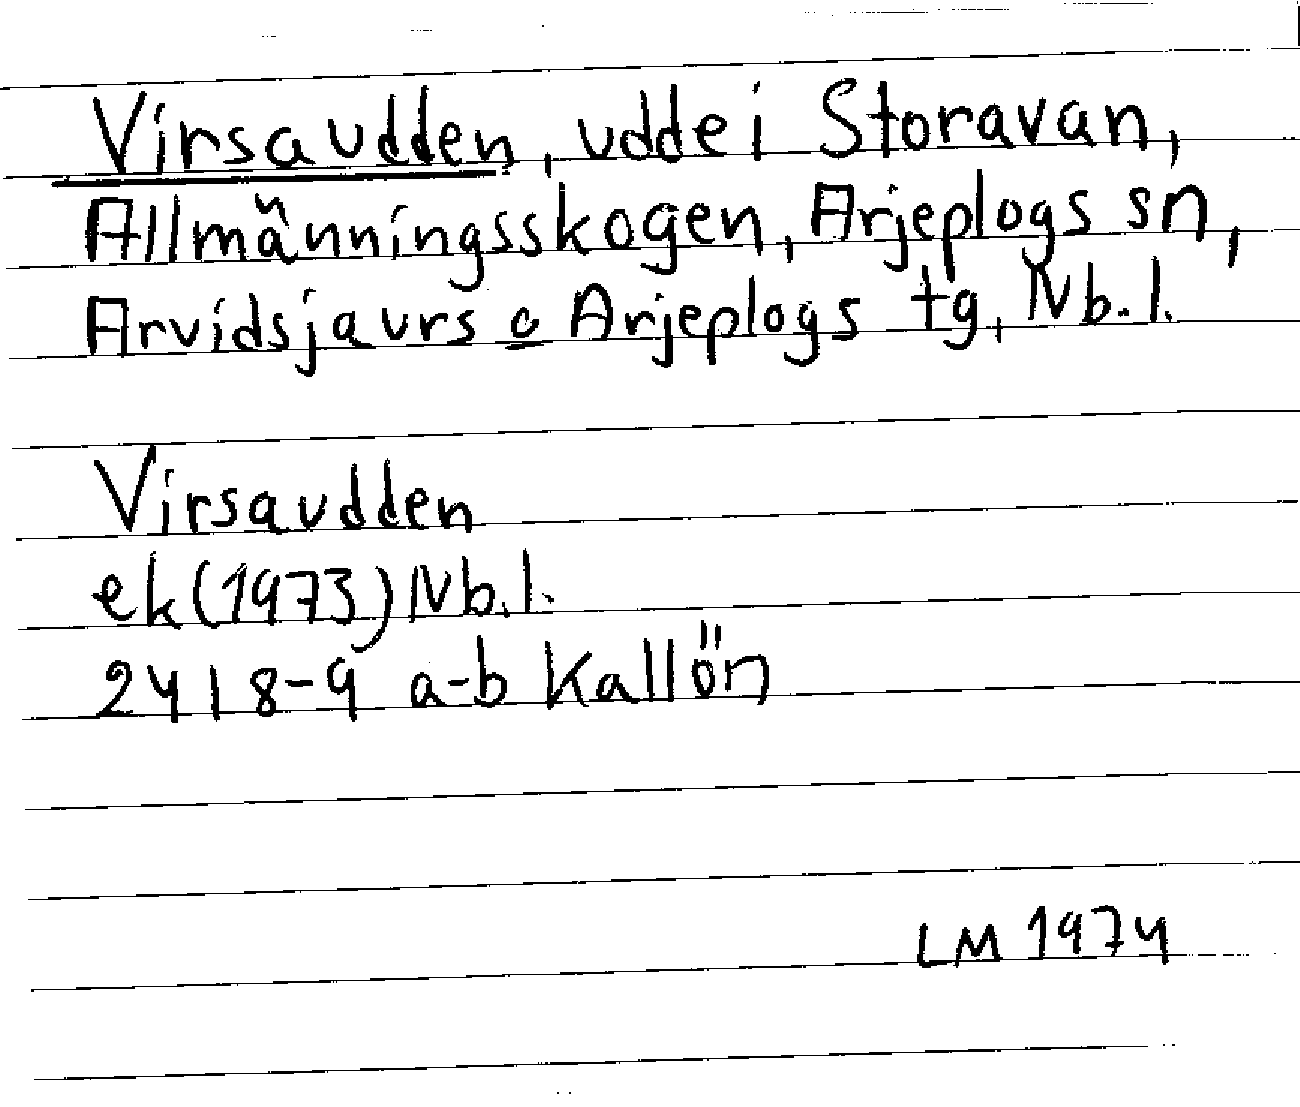 Virsaudden, udde i Storavan,
Allmänningsskogen, Arjeplogs sn,
Arvidsjaurs o Arjeplogs tg, Nb. l.
Virsaudden
ek (1973) Nb. l.
24 I 8-9 a-b Kallön
LM 1974